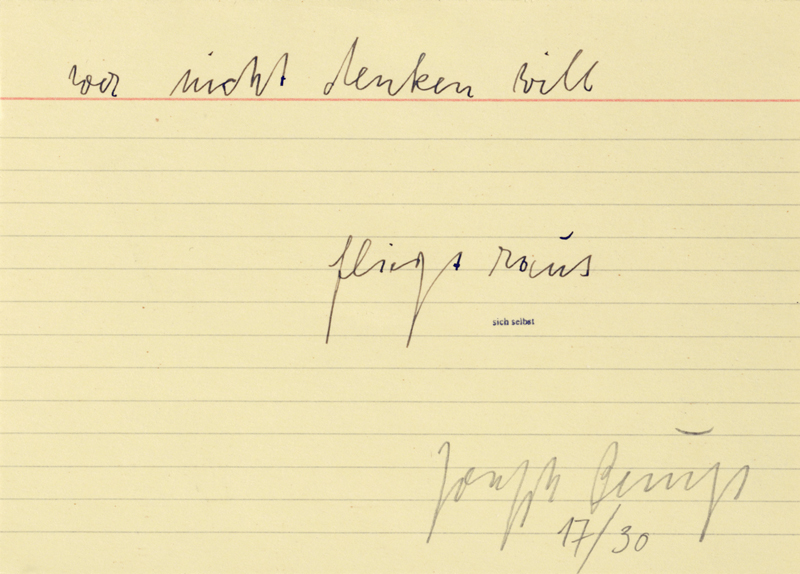 wer nicht denken will
fliegt raus
sich selbst
Joseph Beuys
17/30